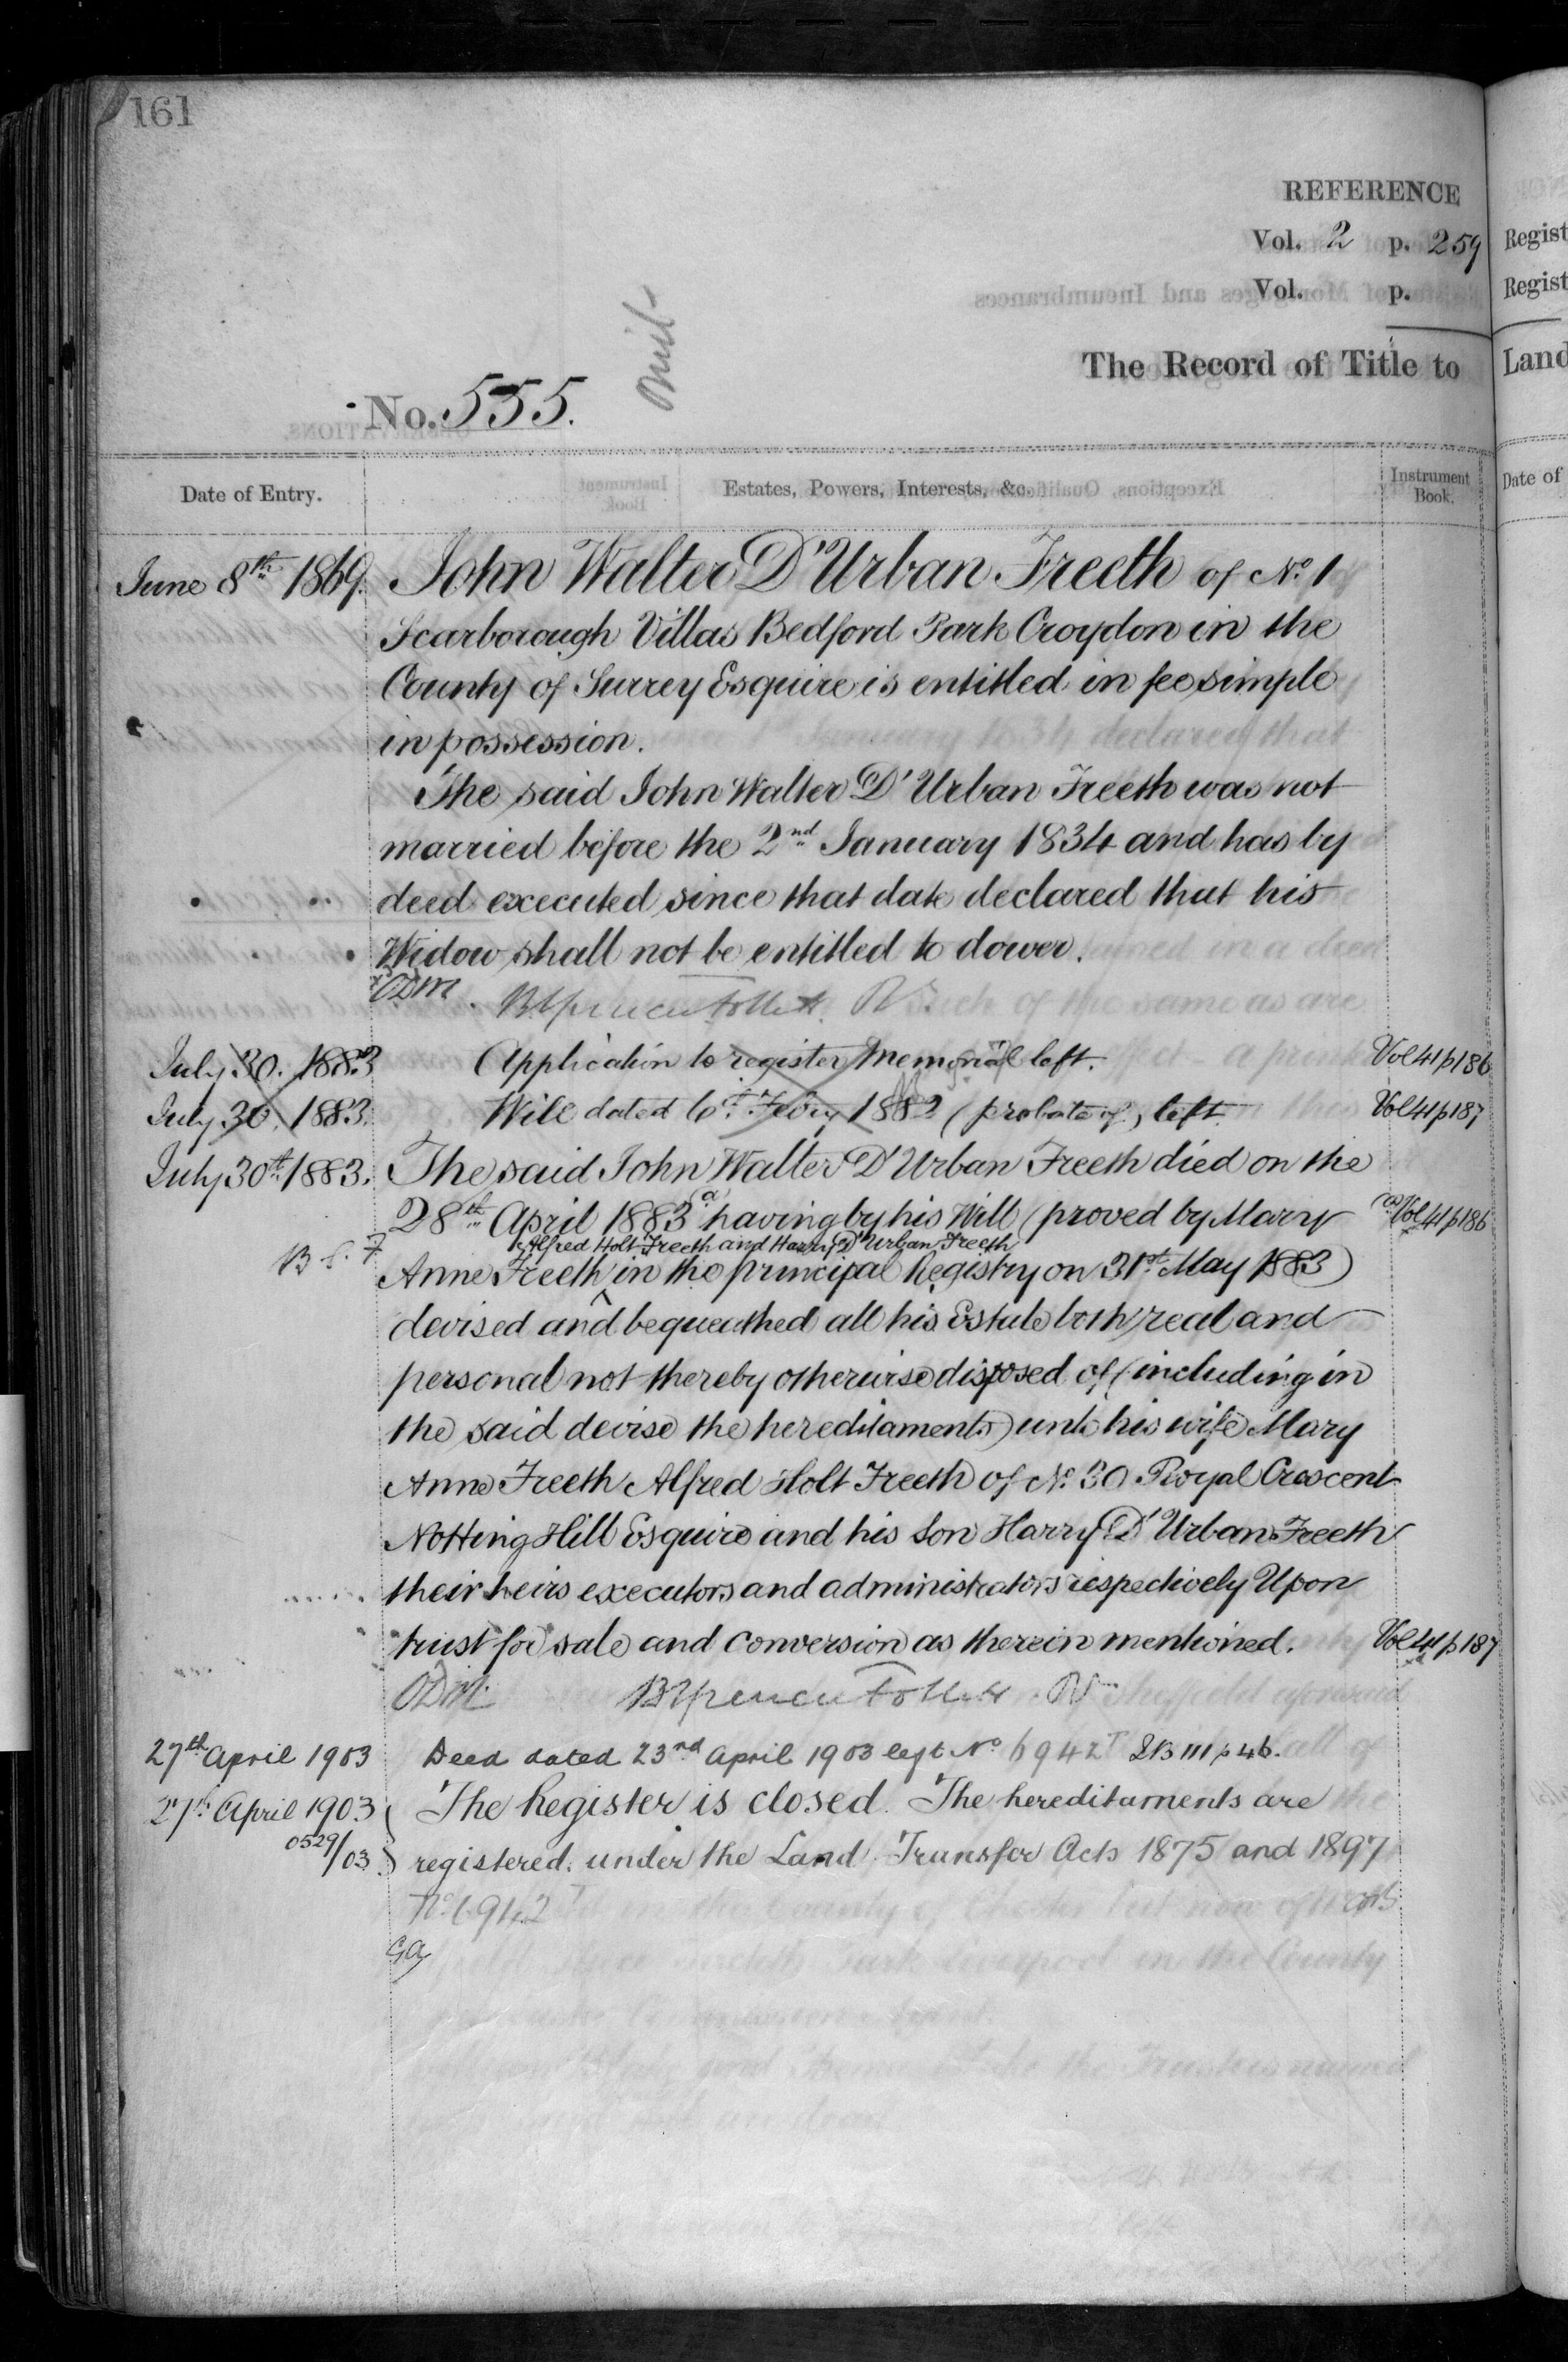 161
REFERENCE
Vol. 2 p. 259
Vol. p.
The Record of Title to
No. 555.
Omit
Date of Entry.
Estates, Powers, Interests, &c.
Instrument Book.
June 8th 1869. John Walter D'Urban Freeth of No. 1
Scarborough Villas Bedford Park Croydon in the
County of Surrey Esquire is entitled in fee simple
in possession.
The said John Walter D'Urban Freeth was not
married before the 2nd January 1834 and has by
deed executed since that date declared that his
Widow shall not be entitled to dower.
ODM. R
July 30. 1883 Application to register Memorial left. Vol 41 p 186
July 30. 1883. Will dated 6th Feby 1882 (probate of) left Vol 41 p 187
July 30th 1883. The said John Walter D'Urban Freeth died on the
28th April 1883 (a) having by his Will (proved by Mary (a) Vol 41 p 186
B S. F Alfred Holt Freeth and Harry D'Urban Freeth
Anne Freeth in the principal Registry on 31st May 1883)
devised and bequeathed all his Estate both real and
personal not thereby otherwise disposed of (including in
the said devise the hereditaments) unto his wife Mary
Anne Freeth Alfred Holt Freeth of No. 30 Royal Crescent
Notting Hill Esquire and his Son Harry D'Urban Freeth
their heirs executors and administrators respectively Upon
trust for sale and conversion as therein mentioned. Vol 41 p 187
ODM. R
27th April 1903 Deed dated 23rd April 1903 left No 6942T IB 111 p 46.
27th April 1903 The Register is closed. The hereditaments are
0529/03 registered under the Land Transfer Acts 1875 and 1897
No. 6942T
GA
Regist
Regist
Land
Date of